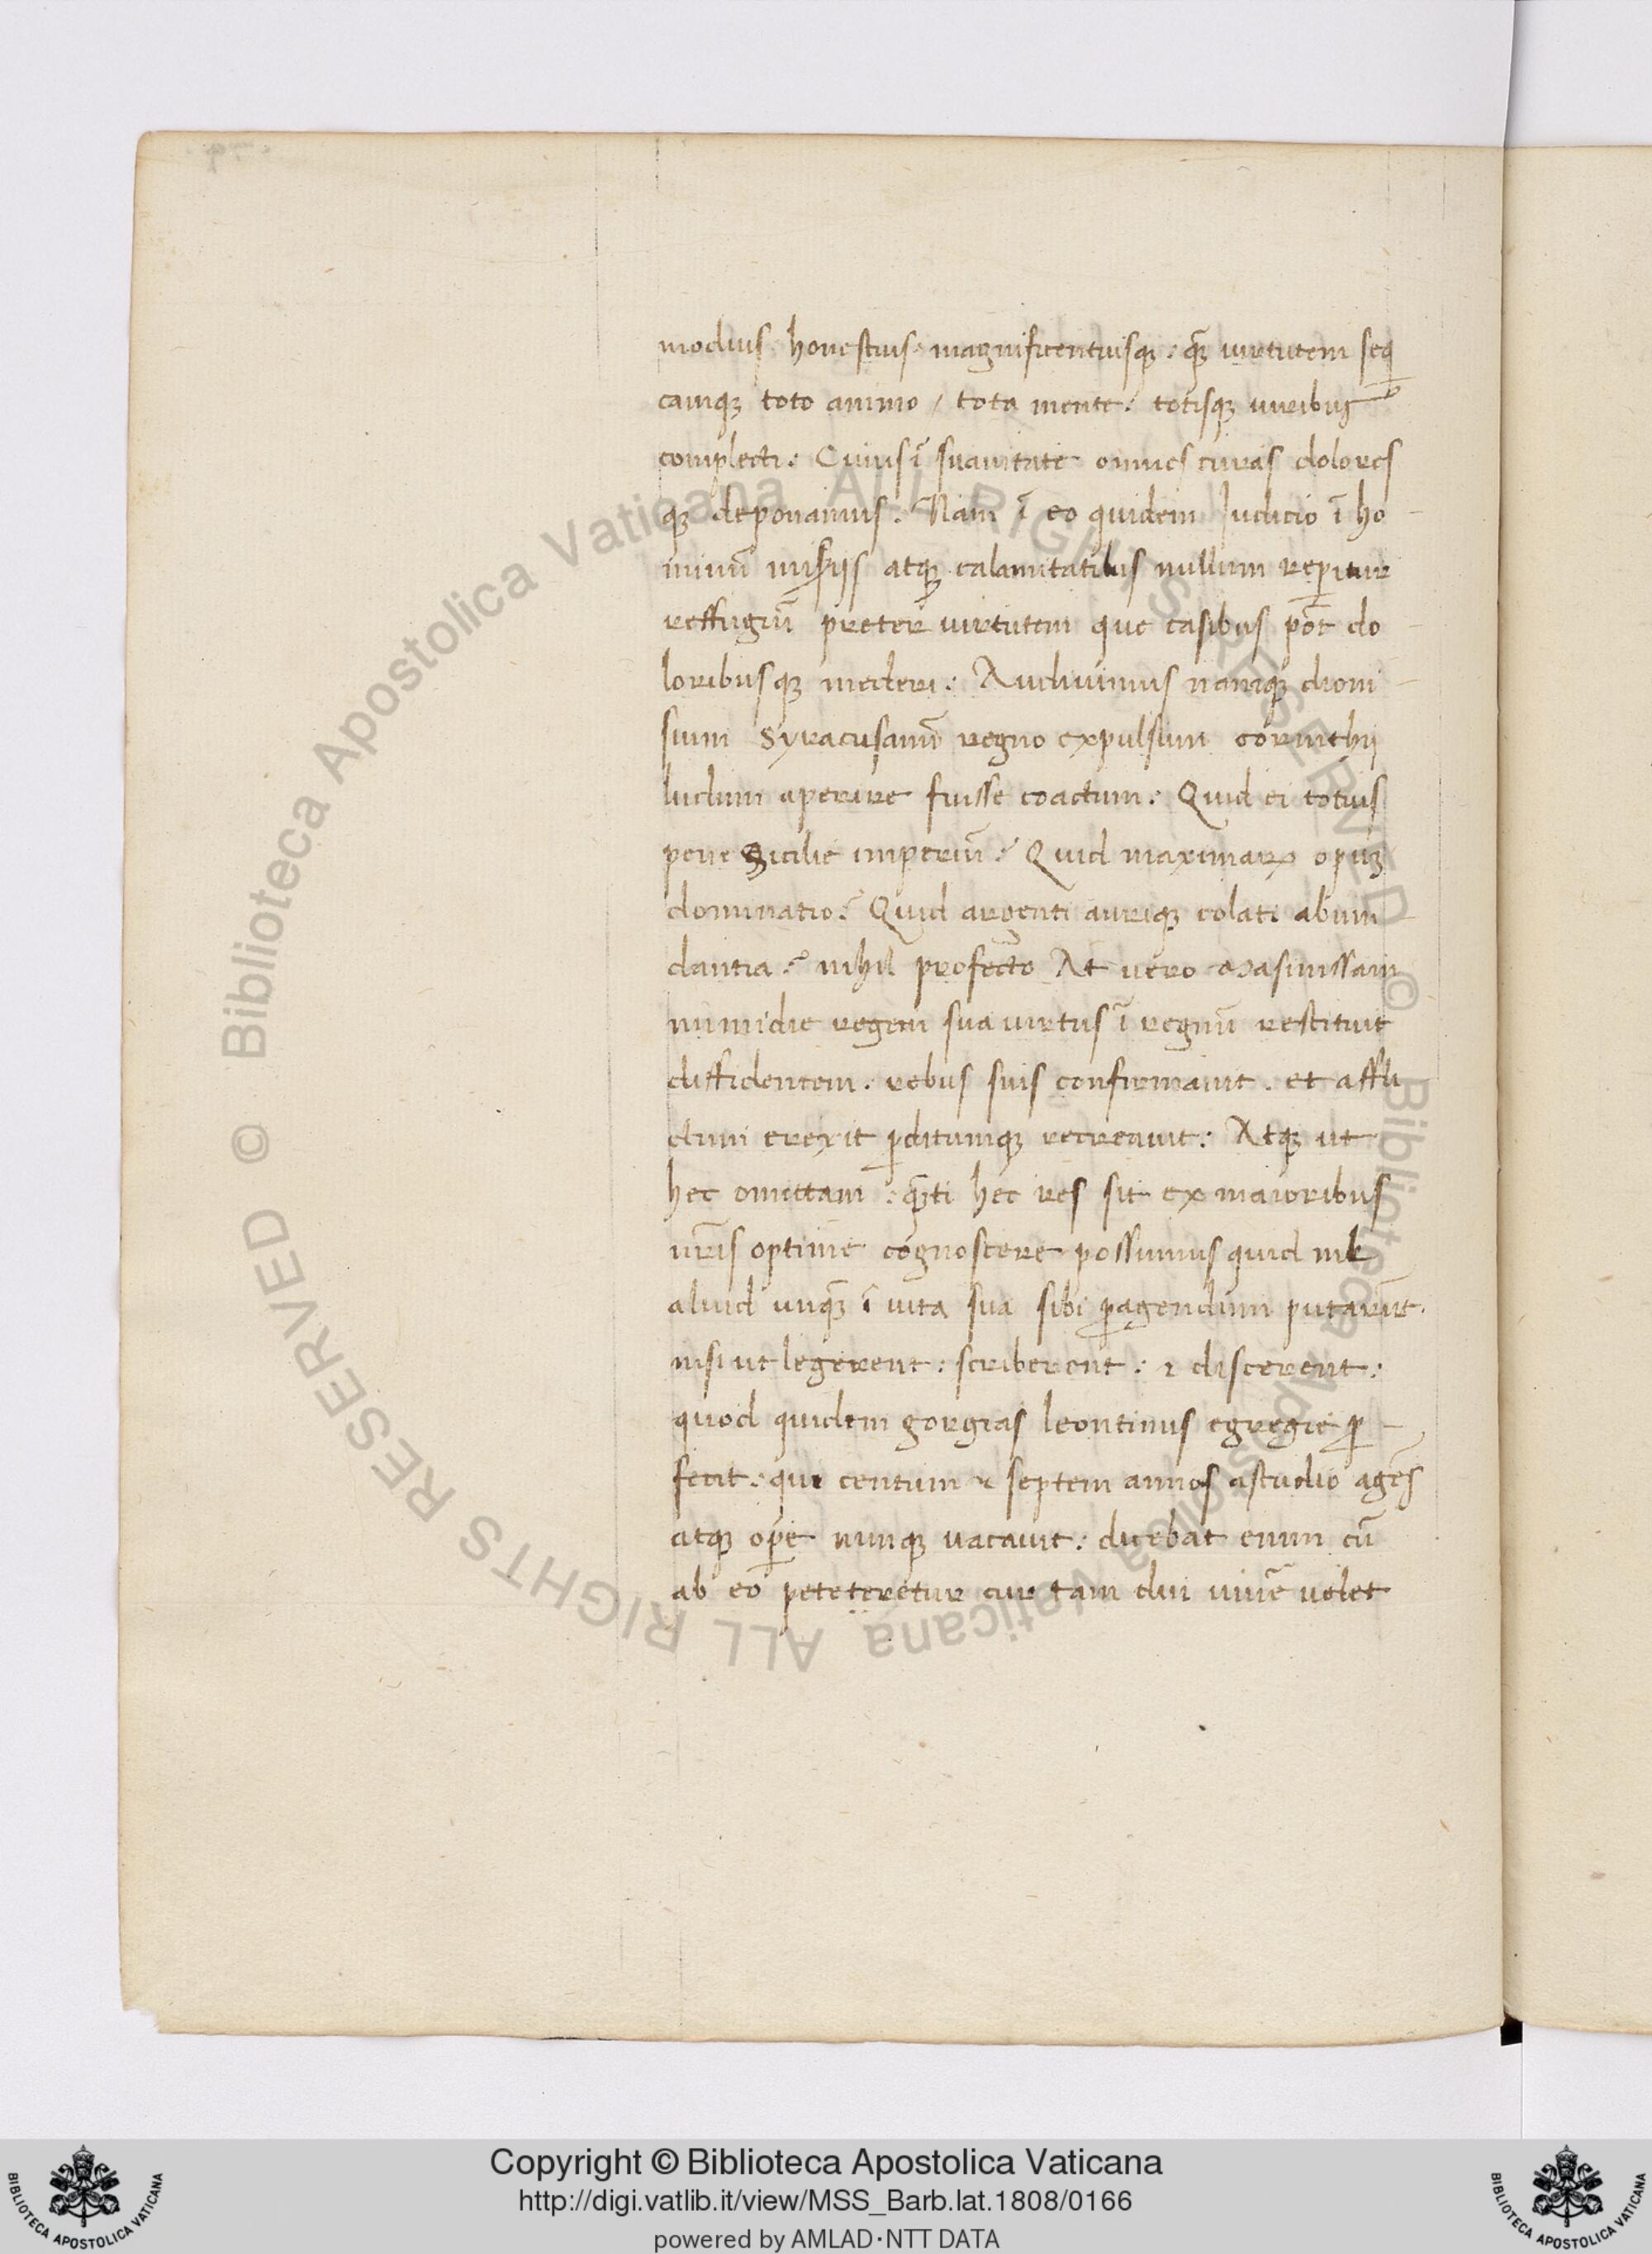 modius. honestius. magnificentiusqꝫ: qꝫ̃ uirtutem seq̃
eamqꝫ toto animo / tota mente: totisqꝫ uiribus
complecti: Cuius ĩ suauitate omnes curas dolores
qꝫ deponamus: Nam ĩ eo quidem Iudicio ĩ ho
minũ mis̃ijs atqꝫ calamitatibus nullum rep̃itur
reffugiũ preter uirtutem que casibus põt do
loribusqꝫ mederi: Audiuimus namqꝫ dioni
sium Syracusanũ regno expulsum corinthij
ludum aperire fuisse coactum: Quid ei totius
pene Sicilie imperiũ? Quid maximaꝝ opuꝫ
dominatio? Quid argenti auriqꝫ colati abun
dantia? nihil profecto At uero Masinissam
numidie regem sua uirtus ĩ regnũ restituit
diffidentem. rebus suis confirmauit. et affli
ctum erexit ꝑditumqꝫ recreauit: Atqꝫ ut
hec omittam: qꝫ̃ti hec res sit ex maioribus
ur̃is optime cognoscere possumus quid nil
aliud unqꝫ̃ ĩ uita sua sibi ꝑagendum putarũt.
nisi ut legerent: scriberent: ⁊ discerent:
quod quidem gorgias leontinus egregie ꝑ
fecit: qui centum ⁊ septem annos astudio agẽs
atqꝫ op̃e nunqꝫ uacauit: dicebat enim cũ
ab eo peteteretur cur tam diu uiuẽ uelet
© Biblioteca Apostolica Vaticana ALL RIGHTS RESERVED © Biblioteca Apostolica Vaticana ALL RIGHTS RESERVED
Copyright © Biblioteca Apostolica Vaticana
http://digi.vatlib.it/view/MSS_Barb.lat.1808/0166
powered by AMLAD·NTT DATA
BIBLIOTECA APOSTOLICA VATICANA
BIBLIOTECA APOSTOLICA VATICANA